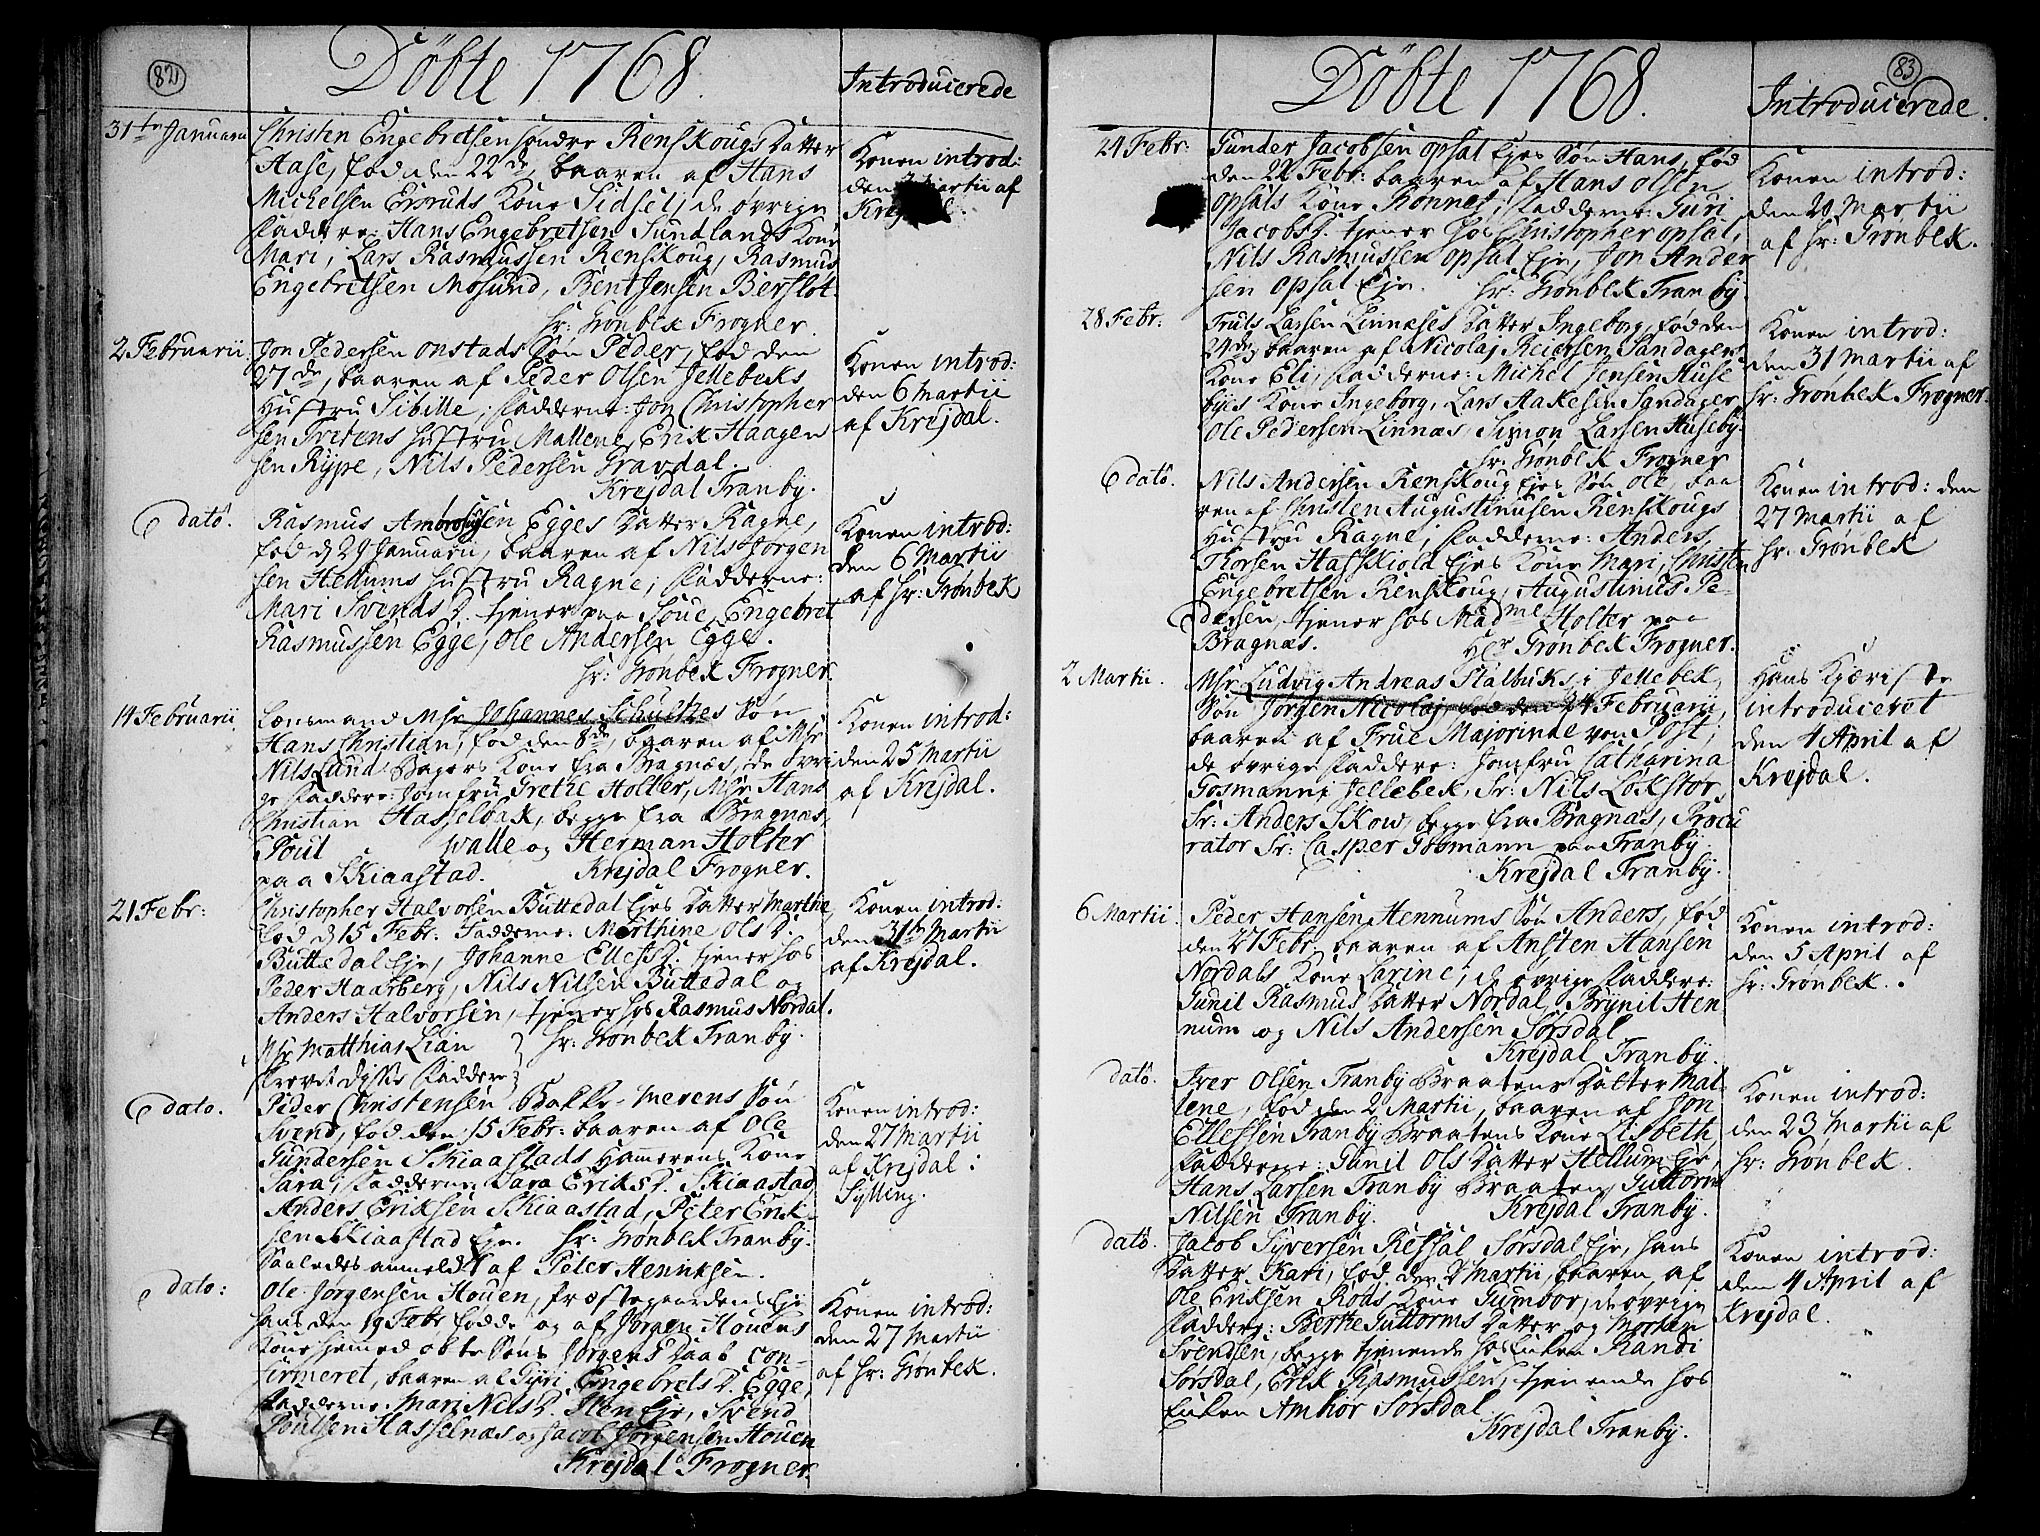 82
Döbte 1768.
Introducerede
31te Januarii
Christen Engebretsen søndre Renskougs Datter
Aase, fød den 22de, baaren af Hans
Michelsen Ersruds Kone Sidsel; de øvrige
Faddere: Hans Engebretsen Sundlands Kone
Mari, Lars Rasmussen Renskoug, Rasmus
Engebretsen Mosund, Bent Jensen Bersløt.
Hr: Grönbek Frogner.
Konen introd:
den Martii af
Krejdal.
2 Februarii
Jon Pedersen Onstads Sön Peder, fød den
27de, baaren af Peder Olsen Jellebeks
Hustru Sibille; Fadderne: Jon Christopher
sen Tverens Hustru Mallene, Erik Haagen
sen Rype, Nils Pedersen Gravdal.
Krejdal Tranby.
Konen introd:
den 6 Martii
af Krejdal.
E dato.
Rasmus Ambrosiussen Egges Datter Ragne,
fød d 29 Januarii, baaren af Nils Jörgen
sen Hellums Hustru Ragne; Fadderne:
Mari Svends D. tjener paa Soue, Engebret
Rasmussen Egge, Ole Andersen Egge.
Hr: Grönbek Frogner.
Konen introd:
den 6 Martii
af Hr: Grönbek
14 Februarii
Lensmand Msr Johannes Schultzes Sön
Hans Christian, fød den 8de, baaren af Msr
Nils Lund Bagers Kone fra Bragnæs, de øvri
ge Faddere: Jomfru Grethe Holter, Msr Hans
Christian Hasselbak, begge fra Bragnæs,
Poul Walle og Herman Holter
paa Skiaastad. Krejdal Frogner.
Konen introd:
den 25 Martii
af Krejdal.
21 Febr:
Christopher Halvorsen Buttedal Ejes Datter Marthe,
fød d 15 Febr: Fadderne: Marthine Ols D.
Buttedal Eje, Johanne Elless D. tjener hos
Peder Haarberg, Nils Nilsen Buttedal og
Anders Halvorsen, tjener hos Rasmus Nordal.
Msr Matthias Lian
skrevet disse Faddere
Hr: Grönbek Tranby.
Konen introd:
den 31te Martii
af Krejdal.
E dato.
Peder Christensen Bakke-Merens Sön
Svend, fød den 15 Febr: baaren af Ole
Gundersen Skiaastads Hammerens Kone
Sara; Fadderne Sara Eriks D. Skiaastad
Anders Eriksen Skiaastad, Peter Erik
sen Skiaastad Eje. Hr: Grönbek Tranby.
Saaledes anmeldt af Peter Henriksen.
Konen introd:
den 27 Martii
af Krejdal i
Sylling.
E dato:
Ole Jörgensen Houen, Præstegaardens Eje
hans den 19 Febr. fødde og af Jörgen Houens
Kone hjemed øbte Söns Jörgens Daab con-
firmeret, baaren af Gyri Engebrets D. Egge,
Fadderne Mari Nils D. Hen Eje, Svend
Poulsen Hasselnæs og Jacob Jörgensen Houen
Krejdal Frogner.
Konen introd:
den 27 Martii
af Hr: Grönbek.
83
Döbte 1768.
Introducerede.
24 Febr:
Gunder Jacobsen Opsal Ejes Sön Hans, fød
den 22 Febr: baaren af Hans Olsen
Opsals Kone Ronnet; Fadderne: Guri
Jacobs D. tjener hos Christopher Opsal,
Nils Rasmussen Opsal Eje, Jon Ander
sen Opsal Eje. Hr: Grönbek Tranby.
Konen introd:
den 20 Martii
af Hr: Grönbek.
28 Febr:
Truls Larsen Linnæses Datter Ingeborg, fød den
24de, baaren af Nicolaj Reiersen Sandagers
Kone Eli; Fadderne: Michel Jensen Huse
byes Kone Ingeborg, Lars Aakesen Sandager
Ole Pedersen Linnæs, Simon Larsen Huseby.
Hr: Grönbek Frogner
Konen introd:
den 31 Martii af
Hr: Grönbek Frogner.
E dato.
Nils Andersen Renskoug Ejes Sön Ole, baa
ren af Christen Augustinusen Renskougs
Hustru Ragne; Fadderne: Anders
Thorsen Hasskiold Ejes Kone Mari, Christen
Engebretsen Renskoug, Augustinus Pe-
dersen, tjener hos Madme Holter paa
Bragnæs. Hr Grönbek Frogner.
Konen introd: den
27 Martii af
Hr: Grönbek
2 Martii.
Msr Ludvig Andreas Stalbuks i Jellebek
Sön Jörgen Nicolaj, fød den 24 Februarii,
baaren af Frue Majorinde von Post;
de øvrige Faddere: Jomfru Catharina
Gosmann i Jellebek, Sr: Nils Lökstör,
Sr: Anders Skow, begge fra Bragnæs, Procu
rator Sr: Casper Gosmann paa Tranby.
Krejdal Tranby.
Hans Kjæriste
introduceret
den 4 April af
Krejdal.
6 Martii
Peder Hansen Hennums Sön Anders, fød
den 27 Febr. baaren af Ansten Hansen
Nordals Kone Larine; de øvrige Faddere:
Gunil Rasmus Datter Nordal, Brynil Hen
num og Nils Andersen Sörsdal
Krejdal Tranby.
Konen introd:
den 5 April af
Hr: Grönbek.
dato.
Iver Olsen Tranby Braatens Datter Mal
lene, fød den 2 Martii, baaren af Jon
Ellessen Tranby Braatens Kone Lisbeth
Fadderne: Gunil Ols Datter Hellum Eje,
Hans Larsen Tranby Braaten, Guttorm
Nilsen Tranby. Krejdal Tranby.
Konen introd:
den 23 Martii af
Hr: Grönbek.
dato.
Jacob Syversen Ressal Sörsdal Eje, hans
Datter Kari, fød den 2 Martii, baaren af
Ole Eriksen Röds Kone Gumbor, de øvrige
Faddere: Berthe Guttorms Datter og Morten
Svendsen, begge tjenende hos Enken Randi
Sörsdal, Erik Rasmussen, tjenende hos
Enken Ambiör Sörsdal
Krejdal Tranby.
Konen introd:
den 4 April af
Krejdal.